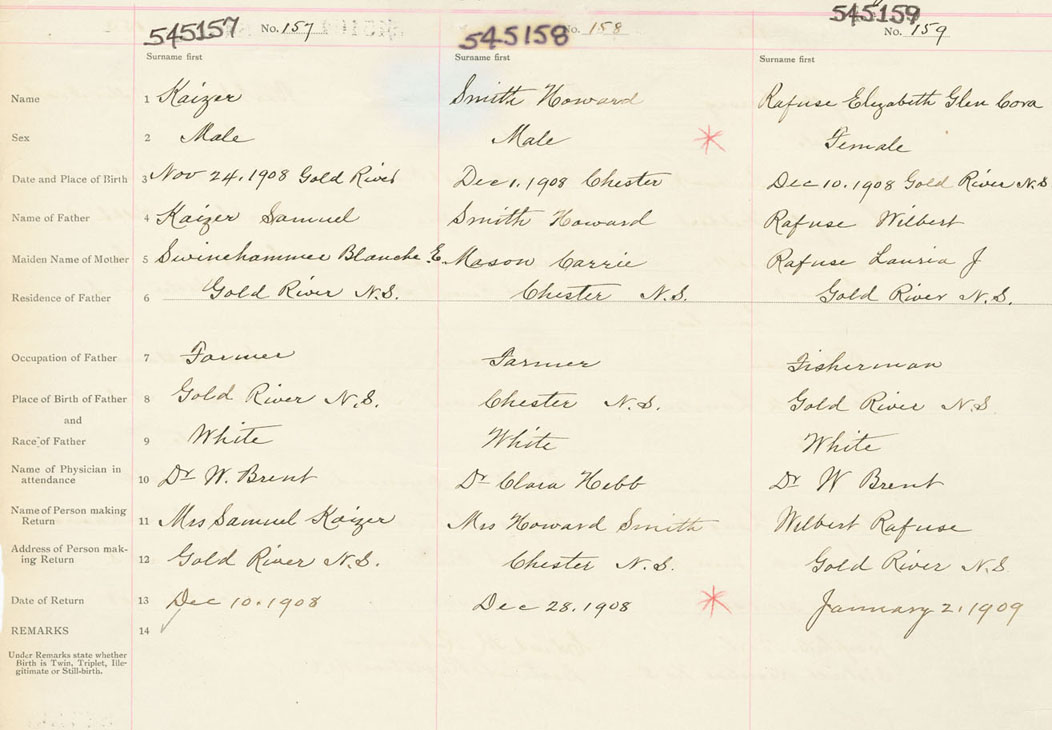 545157 No. 157 545158 No. 158 545159 No. 159
Surname first Surname first Surname first
Name 1 Kaizer Smith Howard Rafuse Elizabeth Glen Cora
Sex 2 Male Male Female
Date and Place of Birth 3 Nov 24, 1908 Gold River Dec 1, 1908 Chester Dec 10, 1908 Gold River N.S
Name of Father 4 Kaizer Samuel Smith Howard Rafuse Wilbert
Maiden Name of Mother 5 Blanche E Mason Carrie Rafuse Lauria J
Residence of Father 6 Gold River N.S. Chester N.S. Gold River N.S.
Occupation of Father 7 Farmer Farmer Fisherman
Place of Birth of Father 8 Gold River N.S. Chester N.S. Gold River N.S.
and
Race of Father 9 White White White
Name of Physician in
attendance 10 Dr W. Brent Dr Clara Hebb Dr W Brent
Name of Person making
Return 11 Mrs Samuel Kaizer Mrs Howard Smith Wilbert Rafuse
Address of Person mak-
ing Return 12 Gold River N.S. Chester N.S. Gold River N.S
Date of Return 13 Dec 10, 1908 Dec 28, 1908 January 2, 1909
REMARKS 14
Under Remarks state whether
Birth is Twin, Triplet, Ille-
gitimate or Still-birth.